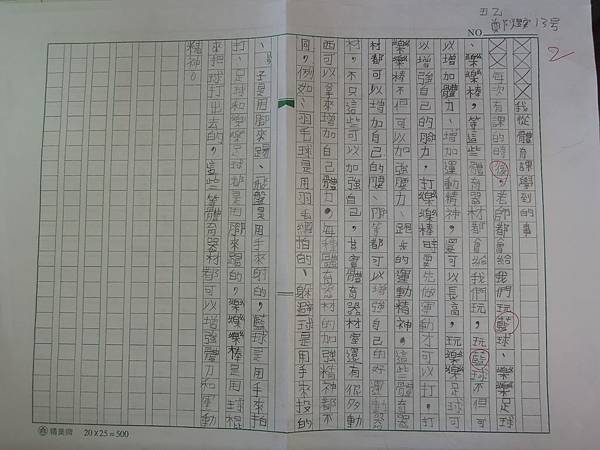 五乙
13号
NO.
2
我從體育課學到的事
每次有課的時後,老師都會給我們玩籃球、樂樂足球
、樂樂棒,等這些體育器材都會給我們玩,玩籃球不但可
以增加體力、增加運動精神,還可以長高,玩樂樂足球可
以增強自己的腳力,打樂樂棒時要先做運動才可以打,打
樂樂棒不但可以加強腰力、跑步的運動精神。這些體育器
材都可以增加自己的腰、腳等都可以增強自己的好運動器
材,不只這些可以加強自己,其實體育器材當還有很多動
西可以拿來增加自己體力,每種體育器材的加強精神都不
同,例如、羽毛球是用羽毛續拍的、躲避球是用手來投的
、子是用腳來踢、飛盤是用手來射的,籃球是用手來拍
打、足球和樂樂足球都是用腳來踢的,樂樂棒是用球棍
來把球打出去的,這些等體育器材都可以增強體力和運動
精神。
精美牌 20X25=500